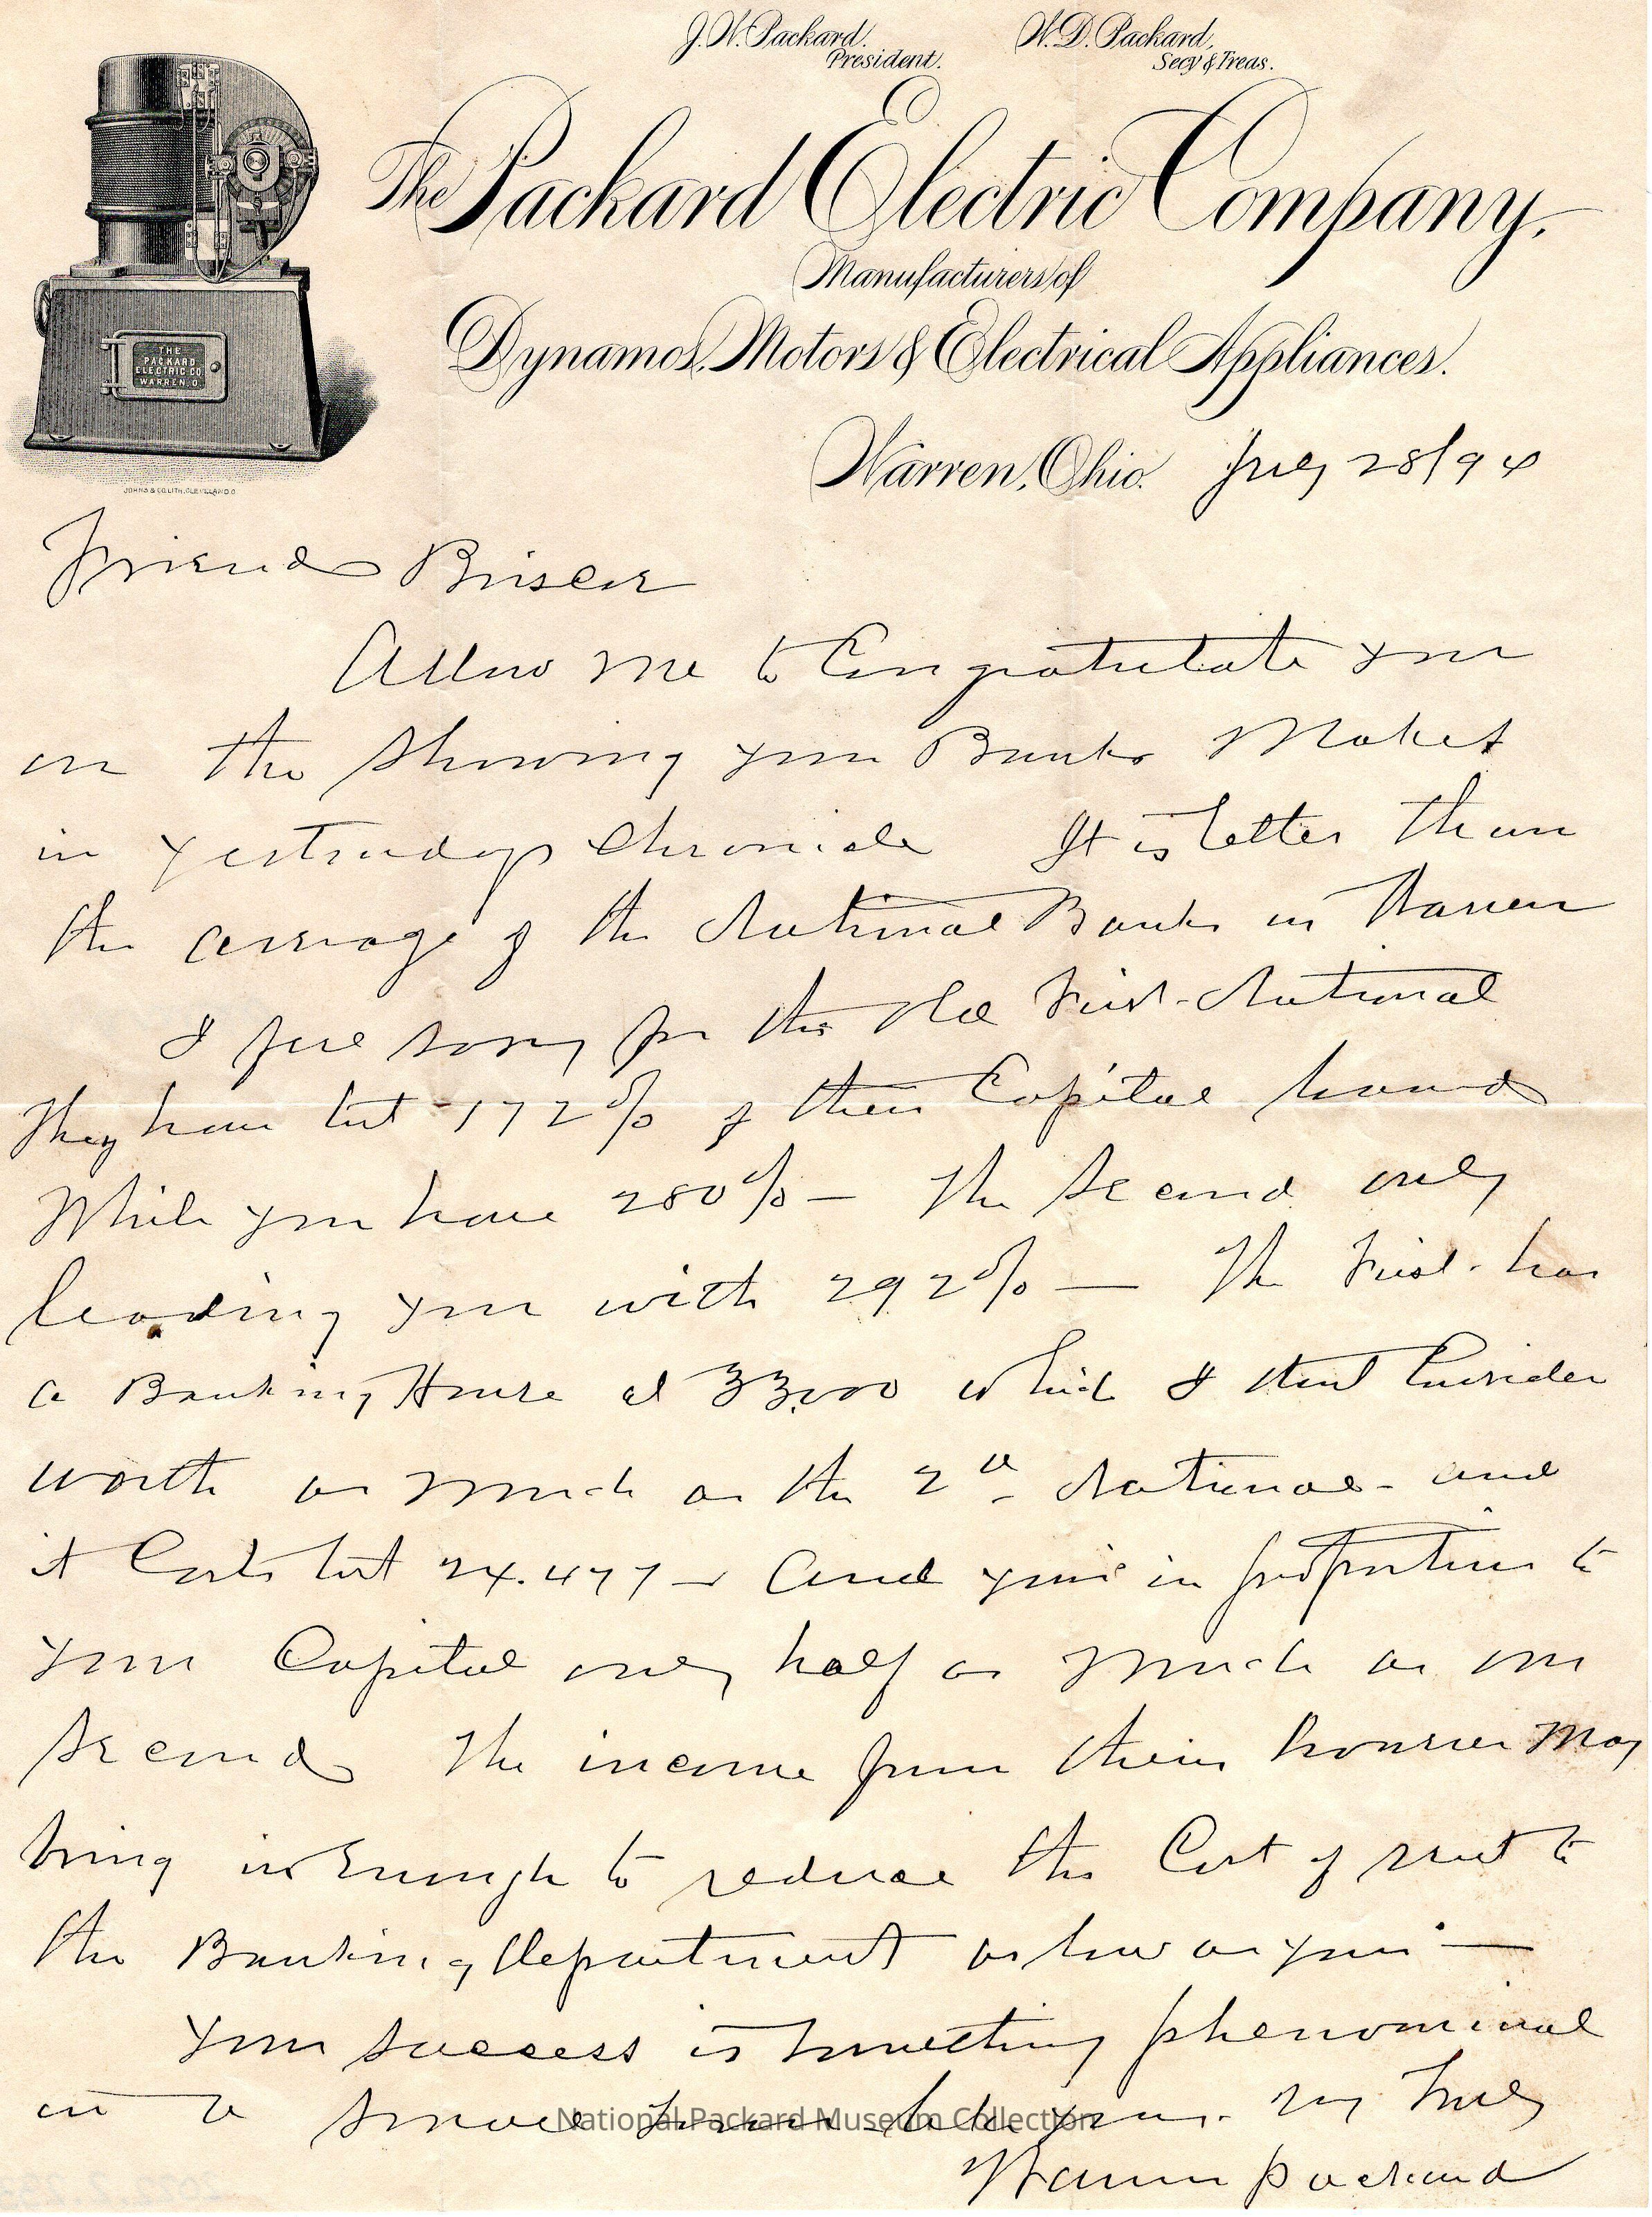 J. W. Packard, President.
W. D. Packard, Secy & Treas.
The Packard Electric Company,
Manufacturers of
Dynamos, Motors & Electrical Appliances.
THE
PACKARD
ELECTRIC CO.
WARREN, O.
JOHNS & CO LITH, CLEVELAND O.
Warren, Ohio. July 28/94
Friend
Allow me to Congratulate you
on the showing your Bank Makes
in yesterdays Chronicle It is better than
the average of the National Banks in Warren
I feel sorry for the Old First National
They have but 172% of their Capital loaned
While you have 280% — The Second only
leading you with 292% — The First has
a Banking House at 33,000 which I dont Consider
worth as much as the 2d National - and
it Costs but 24.477 - and yours in proportion to
your Capital only half as much as our
Second The income from their houses May
bring in Enough to reduce the Cost of rent to
the Banking department as low as yours —
Your success is something phenominal
in a small town like yours.
Warren Packard
National Packard Museum Collection